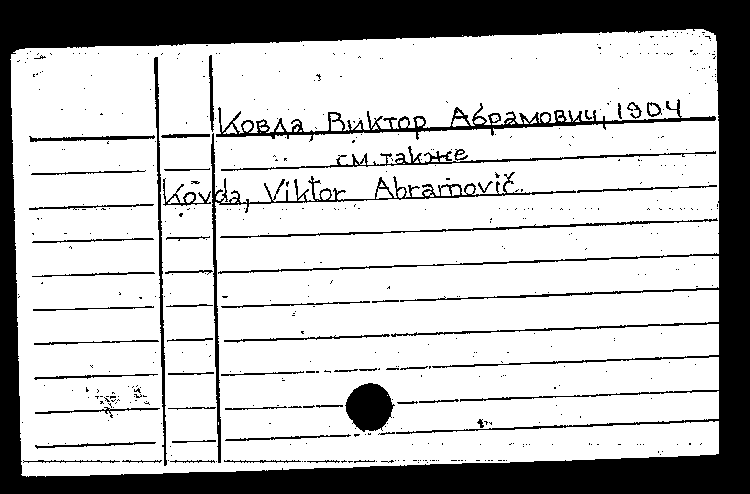 Ковда, Виктор Абрамович, 1904
см. также
Kovda, Viktor Abramovič.